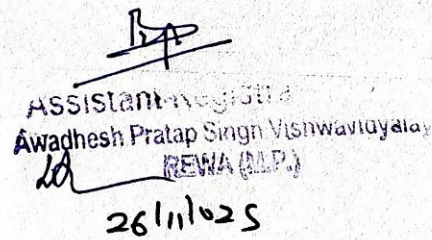 Assistant Registrar
Awadhesh Pratap Singh Vishwavidyalay
REWA (M.P.)
26/11/025